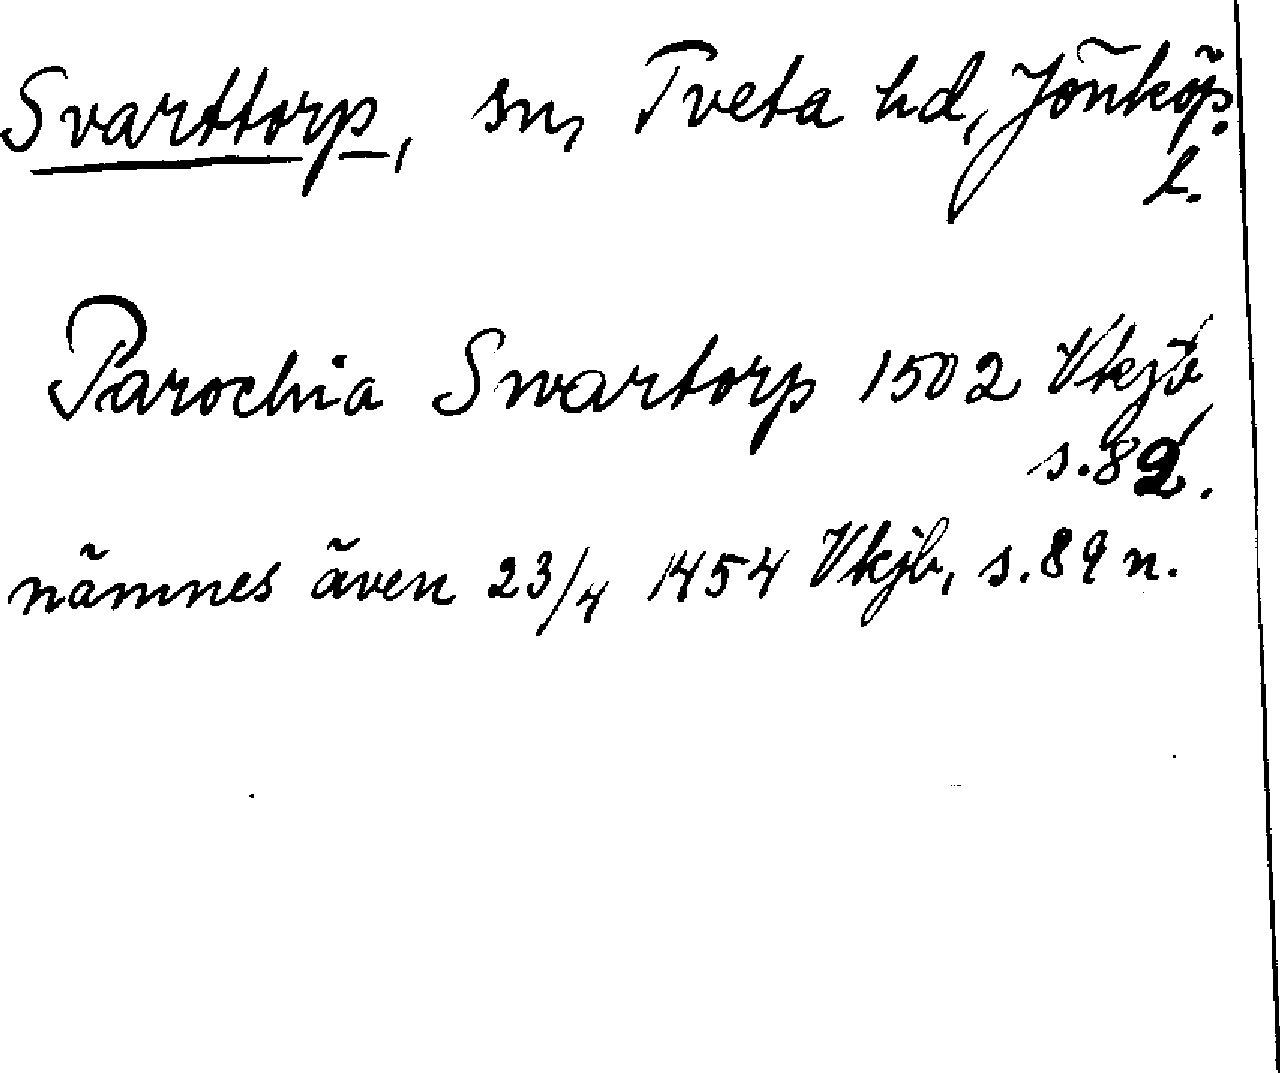 Svarttorp, sn, Tveta hd, Jönköp.
l.
Parochia Swartorp 1502 Vkjb
s. 82.
nämnes även 23/4 1454 Vkjb, s. 89 n.